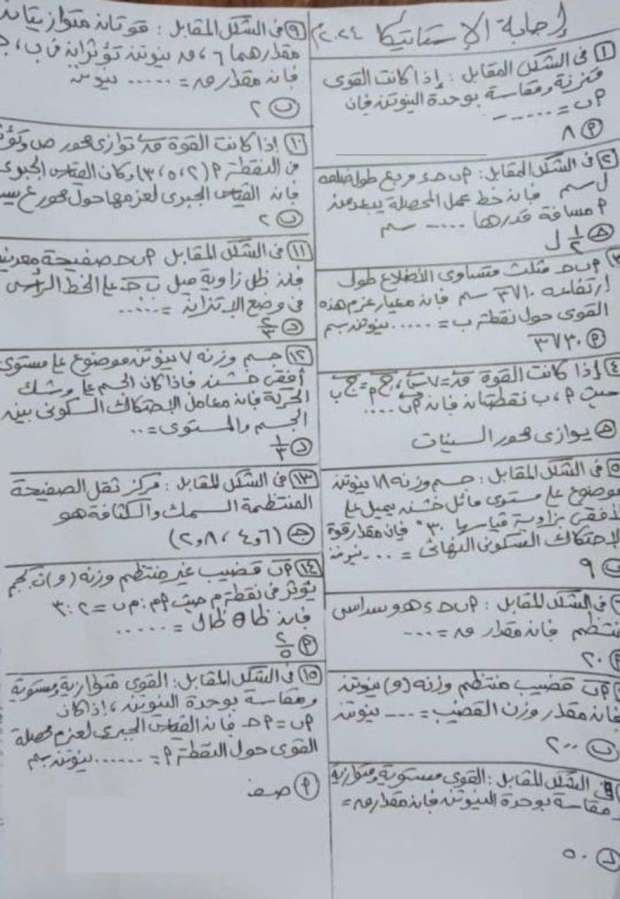 إجابة الاستاتيكا ٢٠٢٤م
١ في الشكل المقابل: إذا كانت القوى
متزنة ومقاسة بوحدة النيوتن فإن
ب = ......
٨
٢ في الشكل المقابل: ٢ ب ح ء مربع طول ضلعه
ل سم فإن خط عمل المحصلة يبعد عن
٢ مسافة قدرها ..... سم
١/٢ ل
٢ ب ح مثلث متساوى الأضلاع طول
ارتفاعه ١٠√٣ سم فإن معيار عزم هذه
القوى حول نقطة ب = ..... نيوتن سم
٣٠√٣
٤ إذا كانت القوة
حيث ٢، ب نقطتان فإن ٢ب ....
يوازى محور السينات
٥ في الشكل المقابل: جسم وزنه ١٨ نيوتن
موضوع على مستوى مائل خشن يميل على
الأفقى بزاوية قياسها ٣٠° فإن مقدار قوة
الاحتكاك السكونى النهائى = .... نيوتن
٩
في الشكل المقابل: ٢ ب ح ء هـ و سداسى
منتظم فإن مقدار ن = ....
٢٠
٢ب قضيب منتظم وزنه (و) نيوتن
فإن مقدار وزن القضيب = .... نيوتن
٢٠٠
في الشكل المقابل: القوى مستوية ومتوازية
ومقاسة بوحدة النيوتن فإن مقدار ن =
٥٠
٩ في الشكل المقابل: قوتان متوازيتان
مقدارهما ٦، ن نيوتن تؤثران في ب،
فإن مقدار ن = ..... نيوتن
٢
١٠ إذا كانت القوة توازى محور ص وتؤثر
في النقطة ٢ (٢، ٥، ٣) وكان القياس الجبرى
فإن القياس الجبرى لعزمها حول محور ع
٢
١١ في الشكل المقابل ٢ ب ح صفيحة معدنية
فإن ظل زاوية ميل ب ح على الخط الرأسى
في وضع الاتزان = .....
١٢ جسم وزنه ٧ نيوتن موضوع على مستوى
أفقى خشن فإذا كان الجسم على وشك
الحركة فإن معامل الاحتكاك السكونى بين
الجسم والمستوى = ..
١/٣
١٣ في الشكل المقابل: مركز ثقل الصفيحة
المنتظمة السمك والكثافة هو
(٦و٤، ٨و٢)
١٤ ٢ب قضيب غير منتظم وزنه (و) ث كجم
يؤثر في نقطة م حيث ٢م : م ب = ٢ : ٣
فإن ظا θ ظا ل = .....
٢/٥
١٥ في الشكل المقابل: القوى متوازية ومستوية
ومقاسة بوحدة النيوتن، إذا كان
٢ب = ٢ح فإن القياس الجبرى لعزم محصلة
القوى حول النقطة ٢ = ...... نيوتن سم
صفر